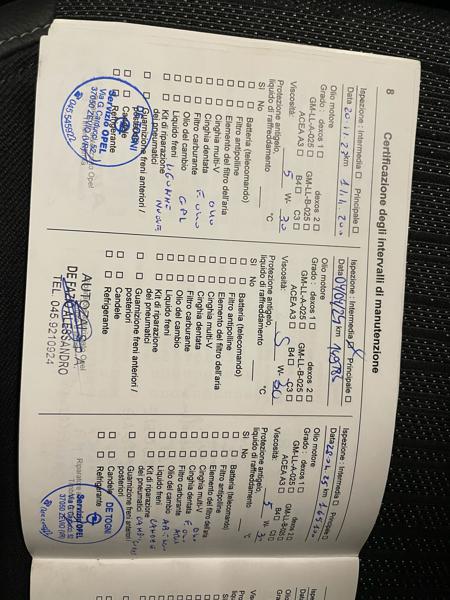 8 Certificazione degli intervalli di manutenzione
Ispezione : Intermedia ☐ Principale ☐
Data 20.11.23 km
Olio motore
Grado : dexos 1 ☐ dexos 2 ☐
GM-LL-A-025 ☐ GM-LL-B-025 ☐
ACEA A3 ☐ B4 ☐ C3 ☐
Viscosità: 5 W- 30
Protezione antigelo,
liquido di raffreddamento °C
SI No
☐ ☐ Batteria (telecomando)
☐ ☐ Filtro antipolline
☐ ☐ Elemento del filtro dell'aria
☐ ☐ Cinghia multi-V
☐ ☐ Cinghia dentata
☐ ☐ Filtro carburante
☐ ☐ Olio del cambio
☐ ☐ Liquido freni
☐ ☐ Kit di riparazione
dei pneumatici
☐ ☐ Guarnizione freni anteriori /
☐ ☐ Candele
☐ ☐ Refrigerante
F. OLIO
OLIO
GPL
DE TOGNI
Servizio OPEL
Via G. Carducci, 52
37050 ZEVIO (VR)
Ispezione : Intermedia Principale ☐
Data 04/04/24 km
Olio motore
Grado : dexos 1 ☐ dexos 2 ☐
GM-LL-A-025 ☐ GM-LL-B-025 ☐
ACEA A3 ☐ B4 ☐ C3 ☐
Viscosità: 5 W- 30
Protezione antigelo,
liquido di raffreddamento °C
SI No
☐ ☐ Batteria (telecomando)
☐ ☐ Filtro antipolline
☐ ☐ Elemento del filtro dell'aria
☐ ☐ Cinghia multi-V
☐ ☐ Cinghia dentata
☐ ☐ Filtro carburante
☐ ☐ Olio del cambio
☐ ☐ Liquido freni
☐ ☐ Kit di riparazione
dei pneumatici
☐ ☐ Guarnizione freni anteriori /
posteriori
☐ ☐ Candele
☐ ☐ Refrigerante
Opel
ALESSANDRO
TEL. 045 9210924
Ispezione : Intermedia ☐ Principale ☐
Data km
Olio motore
Grado : dexos 1 ☐ dexos 2 ☐
GM-LL-A-025 ☐ GM-LL-B-025 ☐
ACEA A3 ☐ B4 ☐
Viscosità: 5 W- 3
Protezione antigelo,
liquido di raffreddamento °C
SI No
☐ ☐ Batteria (telecomando)
☐ ☐ Filtro antipolline
☐ ☐ Elemento del filtro dell'aria
☐ ☐ Cinghia multi-V
☐ ☐ Cinghia dentata
☐ ☐ Filtro carburante
☐ ☐ Olio del cambio
☐ ☐ Liquido freni
☐ ☐ Kit di riparazione
dei pneumatici
☐ ☐ Guarnizione freni anteriori /
posteriori
☐ ☐ Candele
☐ ☐ Refrigerante
F. OLIO
DE TOGNI
Servizio OPEL
Via G. Carducci, 52
37050 ZEVIO (VR)